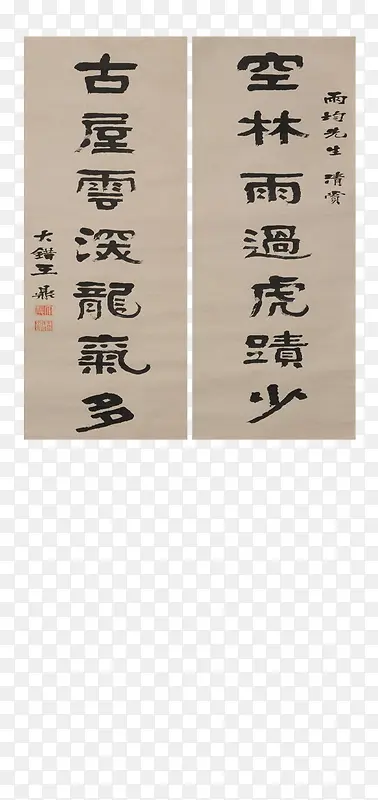 雨均先生清賞
空林雨過虎蹟少
古屋雲深龍氣多
大錯王